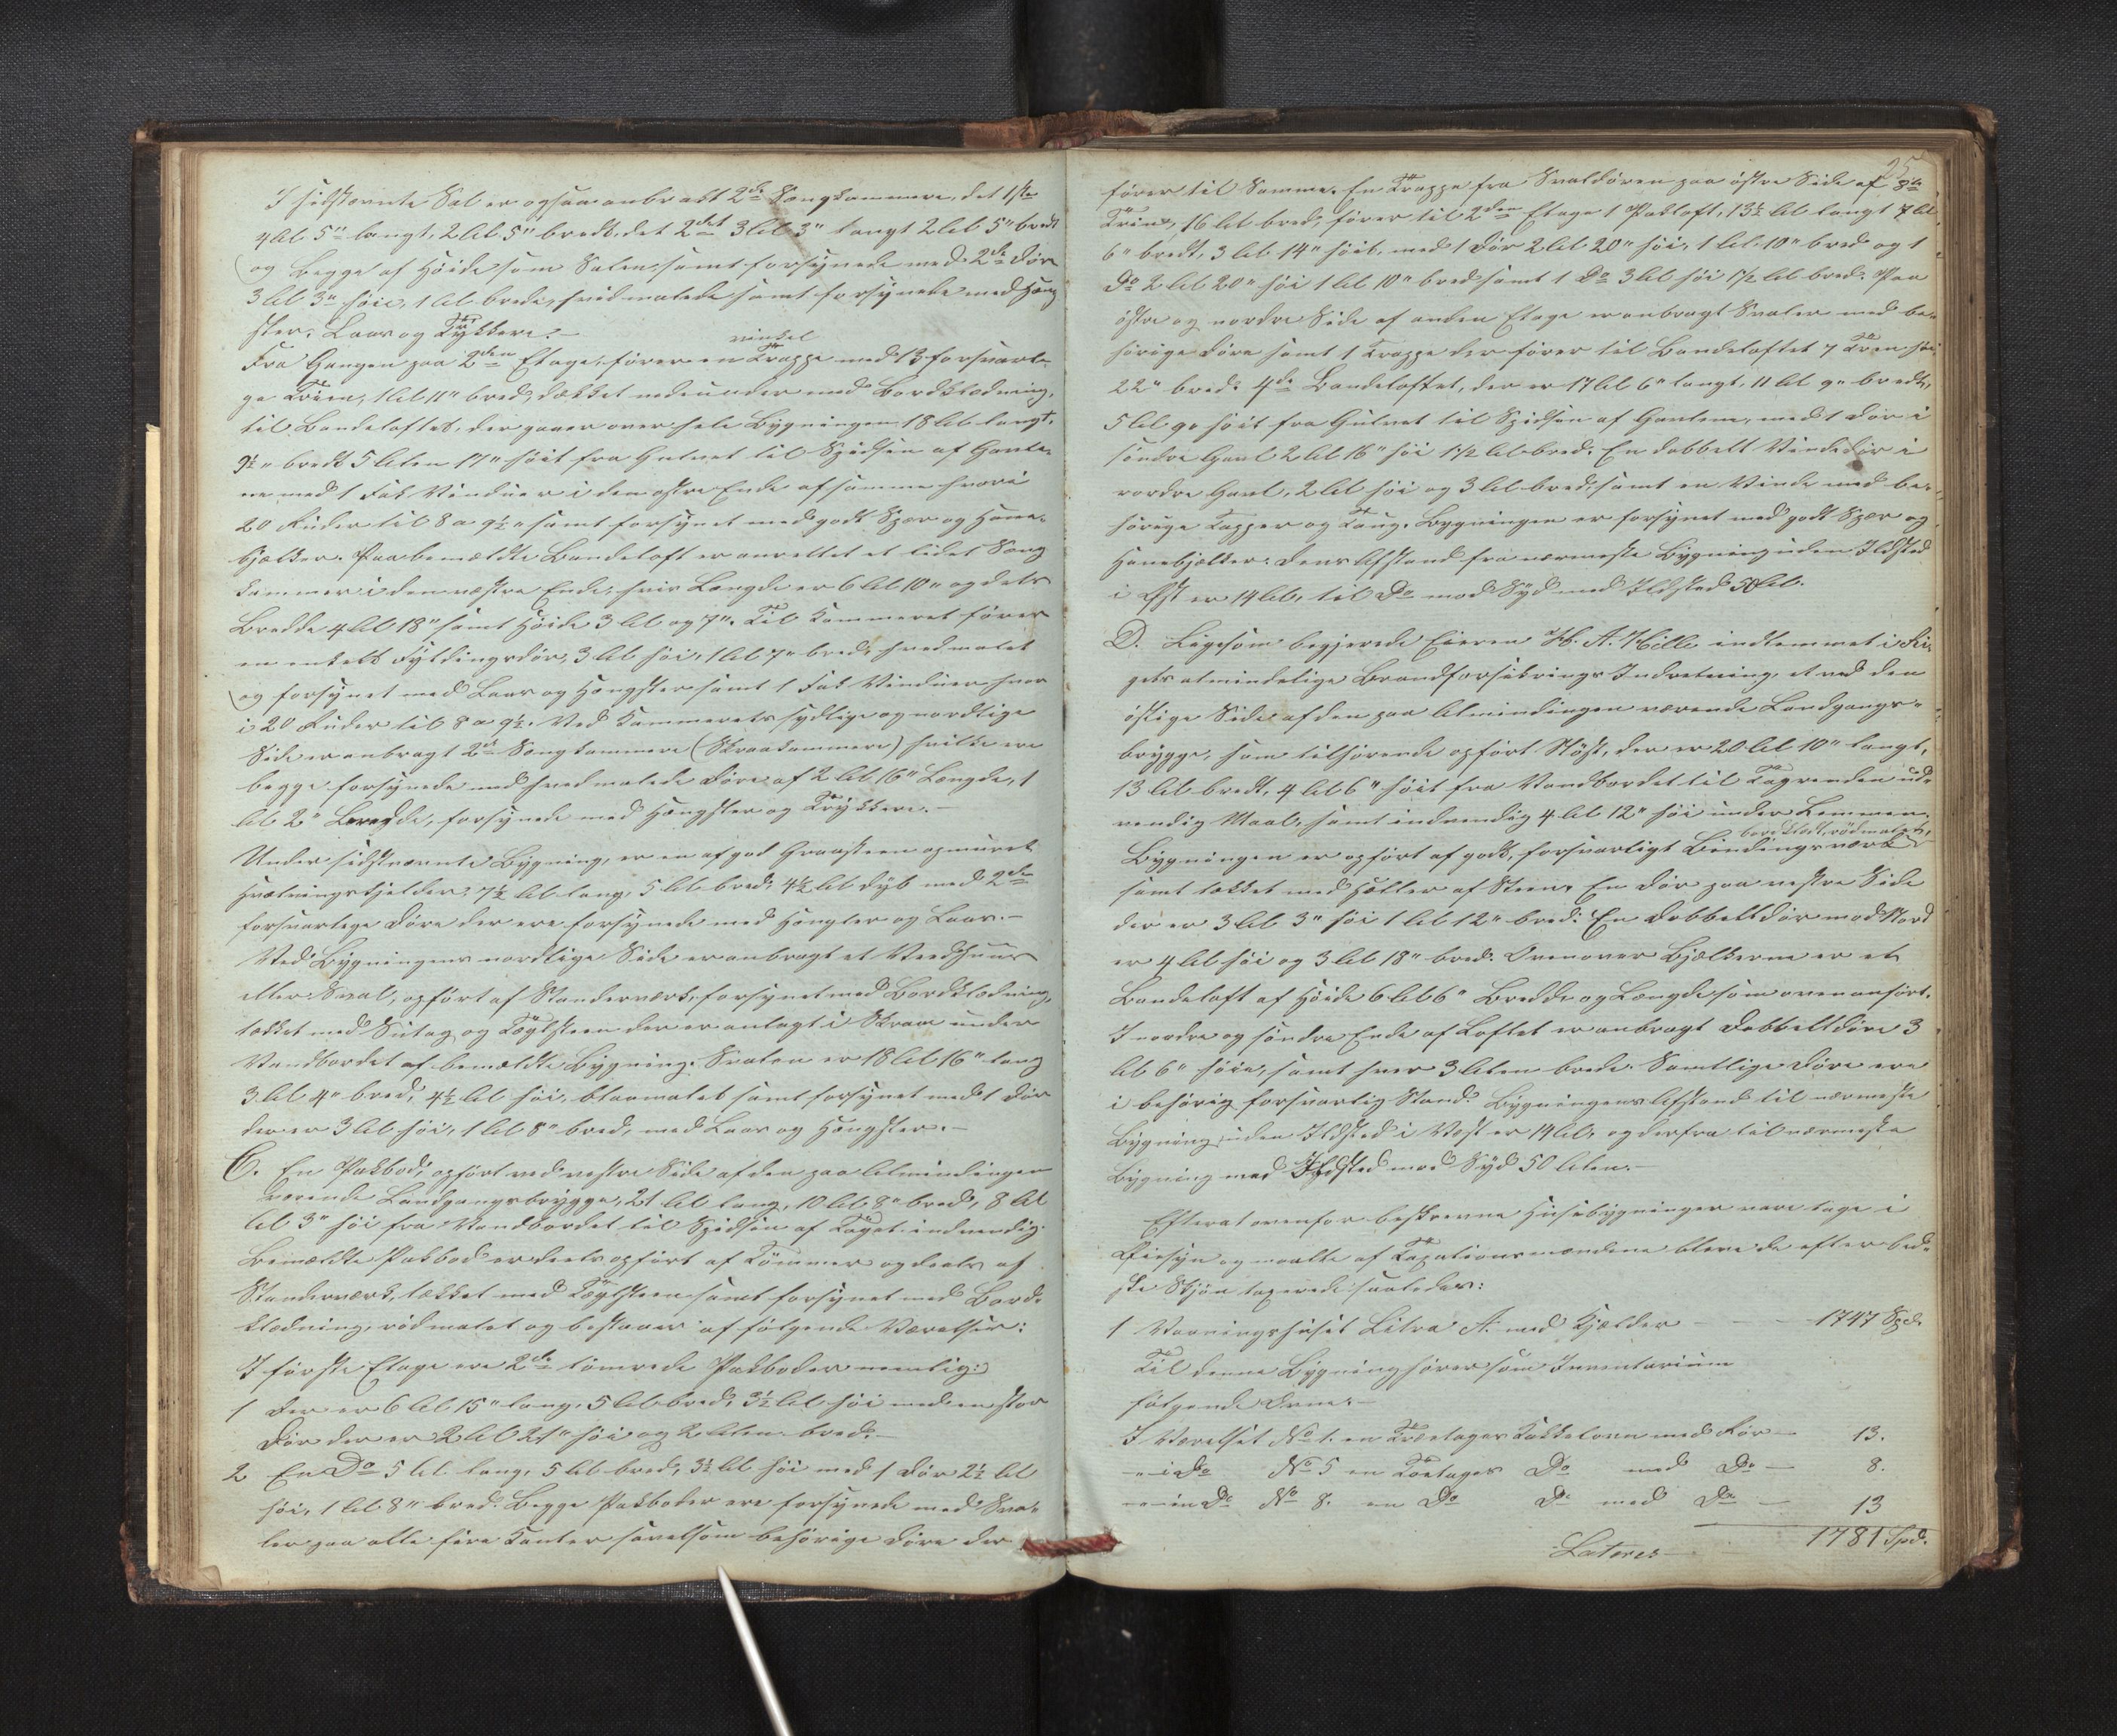 I sidstnævnte Sal er ogsaa anbragt 2de Sængkammere, det 1ste
4 Al 5" langt, 2 Al. 5" bredt, det 2det 3 Al 3" langt 2 Al 5" bredt
og begge af Høide som Salen, samt forsynede med 2de Døre
3 Al 3" høie, 1 Al brede, hvidmalede samt forsynede med Hæng
sler, Laas og Trykkere.–
vinkel
Fra Gangen paa 2den Etage, fører en Trappe med 13 forsvarli-
ge Trine, 1 Al 11" bred, dækket nedenunder med Bordklædning,
til Bandeloftet, der gaaer over hele Bygningen 18 Al langt,
9½" bredt 5 Alen 17" høit fra Gulvet til Spidsen af Gavle-
ne med 1 Fak Vinduer i den østre Ende af samme hvori
20 Ruder til 8 a 9½" samt forsynet med godt Spær og Hane-
bjælker. Paa bemældte Bandeloft er anrettet et lidet Sæng
kammer i den vestre Ende, hvis Længde er 6 Al 10" og dets
Bredde 4 Al 18" samt Høide 3 Al og 7". Til Kammeret fører
en enkelt Fyldingsdør, 3 Al høi, 1 Al 7" bred, hvidmalet
og forsynet med Laas og Hængsler samt 1 Fak Vinduer hvor
i 20 Ruder til 8 a 9½. Ved Kammerets sydlige og nordlige
Side er anbragt 2de Sængkammere (Skraakammere) hvilke ere
begge forsynede med hvidmalede Døre af 2 Al 16" Længde, 1
Al 2" Bredde, forsynede med Hængsler og Trykkere.–
Under sidstnævnte Bygning, er en af god Graasteen opmuret
Hvælvingskjelder, 7½ Al lang, 5 Al bred, 4½ Al dyb med 2de
forsvarlige Døre der ere forsynede med Hængsler og Laas.–
Ved Bygningens nordlige Side er anbragt et Veedhuus
eller Sval, opført af Standerværk, forsynet med Bordklædning,
tækket med Sutag og Tagsteen der er anlagt i Skraa under
Vandbordet af bemældte Bygning. Svalen er 18 Al 16" lang
3 Al 4" bred, 4½ Al høi, blaamalet samt forsynet med 1 Dør
der er 3 Al høi, 1 Al 8" bred, med Laas og Hængsler.–
C. En Pakbod, opført ved vestre Side af den paa Almindingen
værende Landgangsbrygge, 21 Al lang, 10 Al 8" bred, 8 Al
Al 3" høi fra Vandbordet til Spidsen af Taget indvendig.
Bemældte Pakbod er deels opført af Tømmer og deels af
Standerværk, tækket med Tagsteen samt forsynet med Bord-
klædning, rødmalet og bestaaer af følgende Værelser:
I første Etage ere 2de tømrede Pakboder nemlig:
1 Der er 6 Al 15" lang, 5 Al bred, 3½ Al høi med en stor
Dør der er 2 Al 21" høi og 2 Alen bred.–
2 En Do 5 Al lang, 5 Al bred, 3½ Al høi med 1 Dør 2½ Al
høi, 1 Al 8" bred. Begge Pakboder ere forsynede med Sva-
ler paa alle fire Kanter saavelsom behørige Døre der
25
fører til Samme. En Trappe fra Svaldøren paa østre Side af 8te
Trine, 16 Al bred, fører til 2den Etage 1 Pakloft, 13½ Al langt 7 Al
6" bredt, 3 Al 14" høit, med 1 Dør 2 Al 20" høi, 1 Al 10" bred og 1
Do 2 Al 20" høi 1 Al 10" bred samt 1 Do 3 Al høi 1½ Al bred. Paa
østre og nordre Side af anden Etage er anbragt Svaler med be-
hørige Døre samt 1 Trappe der fører til Bandeloftet 7 Trin høi
22" bred. 4de Bandeloftet, der er 17 Al 6" langt, 11 Al 9" bredt,
5 Al 9" høit fra Gulvet til Spidsen af Gavlene, med 1 Dør i
søndre Gavl 2 Al 16" høi 1½ Al bred. En dobbelt Vindedør i
nordre Gavl, 2 Al høi og 3 Al bred, samt en Vinde med be-
hørige Tapper og Taug. Bygningen er forsynet med godt Spær og
Hanebjælker. Dens Afstand fra nærmeste Bygning uden Ildsted
i Øst er 14 Al, til Do mod Syd med Ildsted 50 Al.
D. Ligesom begjerede Eieren H. A. Hille indlemmet i Ri-
gets almindelige Brandforsikrings Indretning, et ved den
østlige Side af den paa Almindingen værende Landgangs-
brygge, ham tilhørende opført Nøst, der er 20 Al 10" langt,
13 Al bredt, 4 Al 6" høit fra Vandbordet til Tagrenden ud-
vendig Maal, samt indvendig 4 Al 12" høi under Lemmen.
bordklædt, rødmalet,
Bygningen er opført af godt, forsvarligt Bindingsværk
samt tækket med Heller af Steen. En Dør paa vestre Side
der er 3 Al 3" høi 1 Al 12" bred. En Dobbeltdør mod Nord
er 4 Al høi og 3 Al 18" bred. Ovenover Bjælkerne er et
Bandeloft af Høide 6 Al 6" Bredde og Længde som ovenanført.
I nordre og søndre Ende af Loftet er anbragt Dobbeltdøre 3
Al 6" høie, samt hver 3 Alen brede. Samtlige Døre ere
i behørig forsvarlig Stand. Bygningens Afstand til nærmeste
Bygning uden Ildsted i Vest er 14 Al, og derfra til nærmeste
Bygning med Ildsted mod Syd 50 Alen.–
Efterat ovenfor beskrevne Huusebygninger vare tage i
Øiesyn og maalte af Taxationsmændene bleve de efter bed-
ste Skjøn taxerede saaledes:
1 Vaaningshuset Litra A. med Kjelder – – – 1747 Spd.
Til denne Bygning hører som Inventarium
følgende Ovne:–
I Værelset No 1. en Treetages Kakkelovn med Rør – 13.
–"– i Do No 5 en Toetages Do med Do – 8.
–"– in Do No 8. en Do Do med Do – 13
Lateres – 1781 Spd.